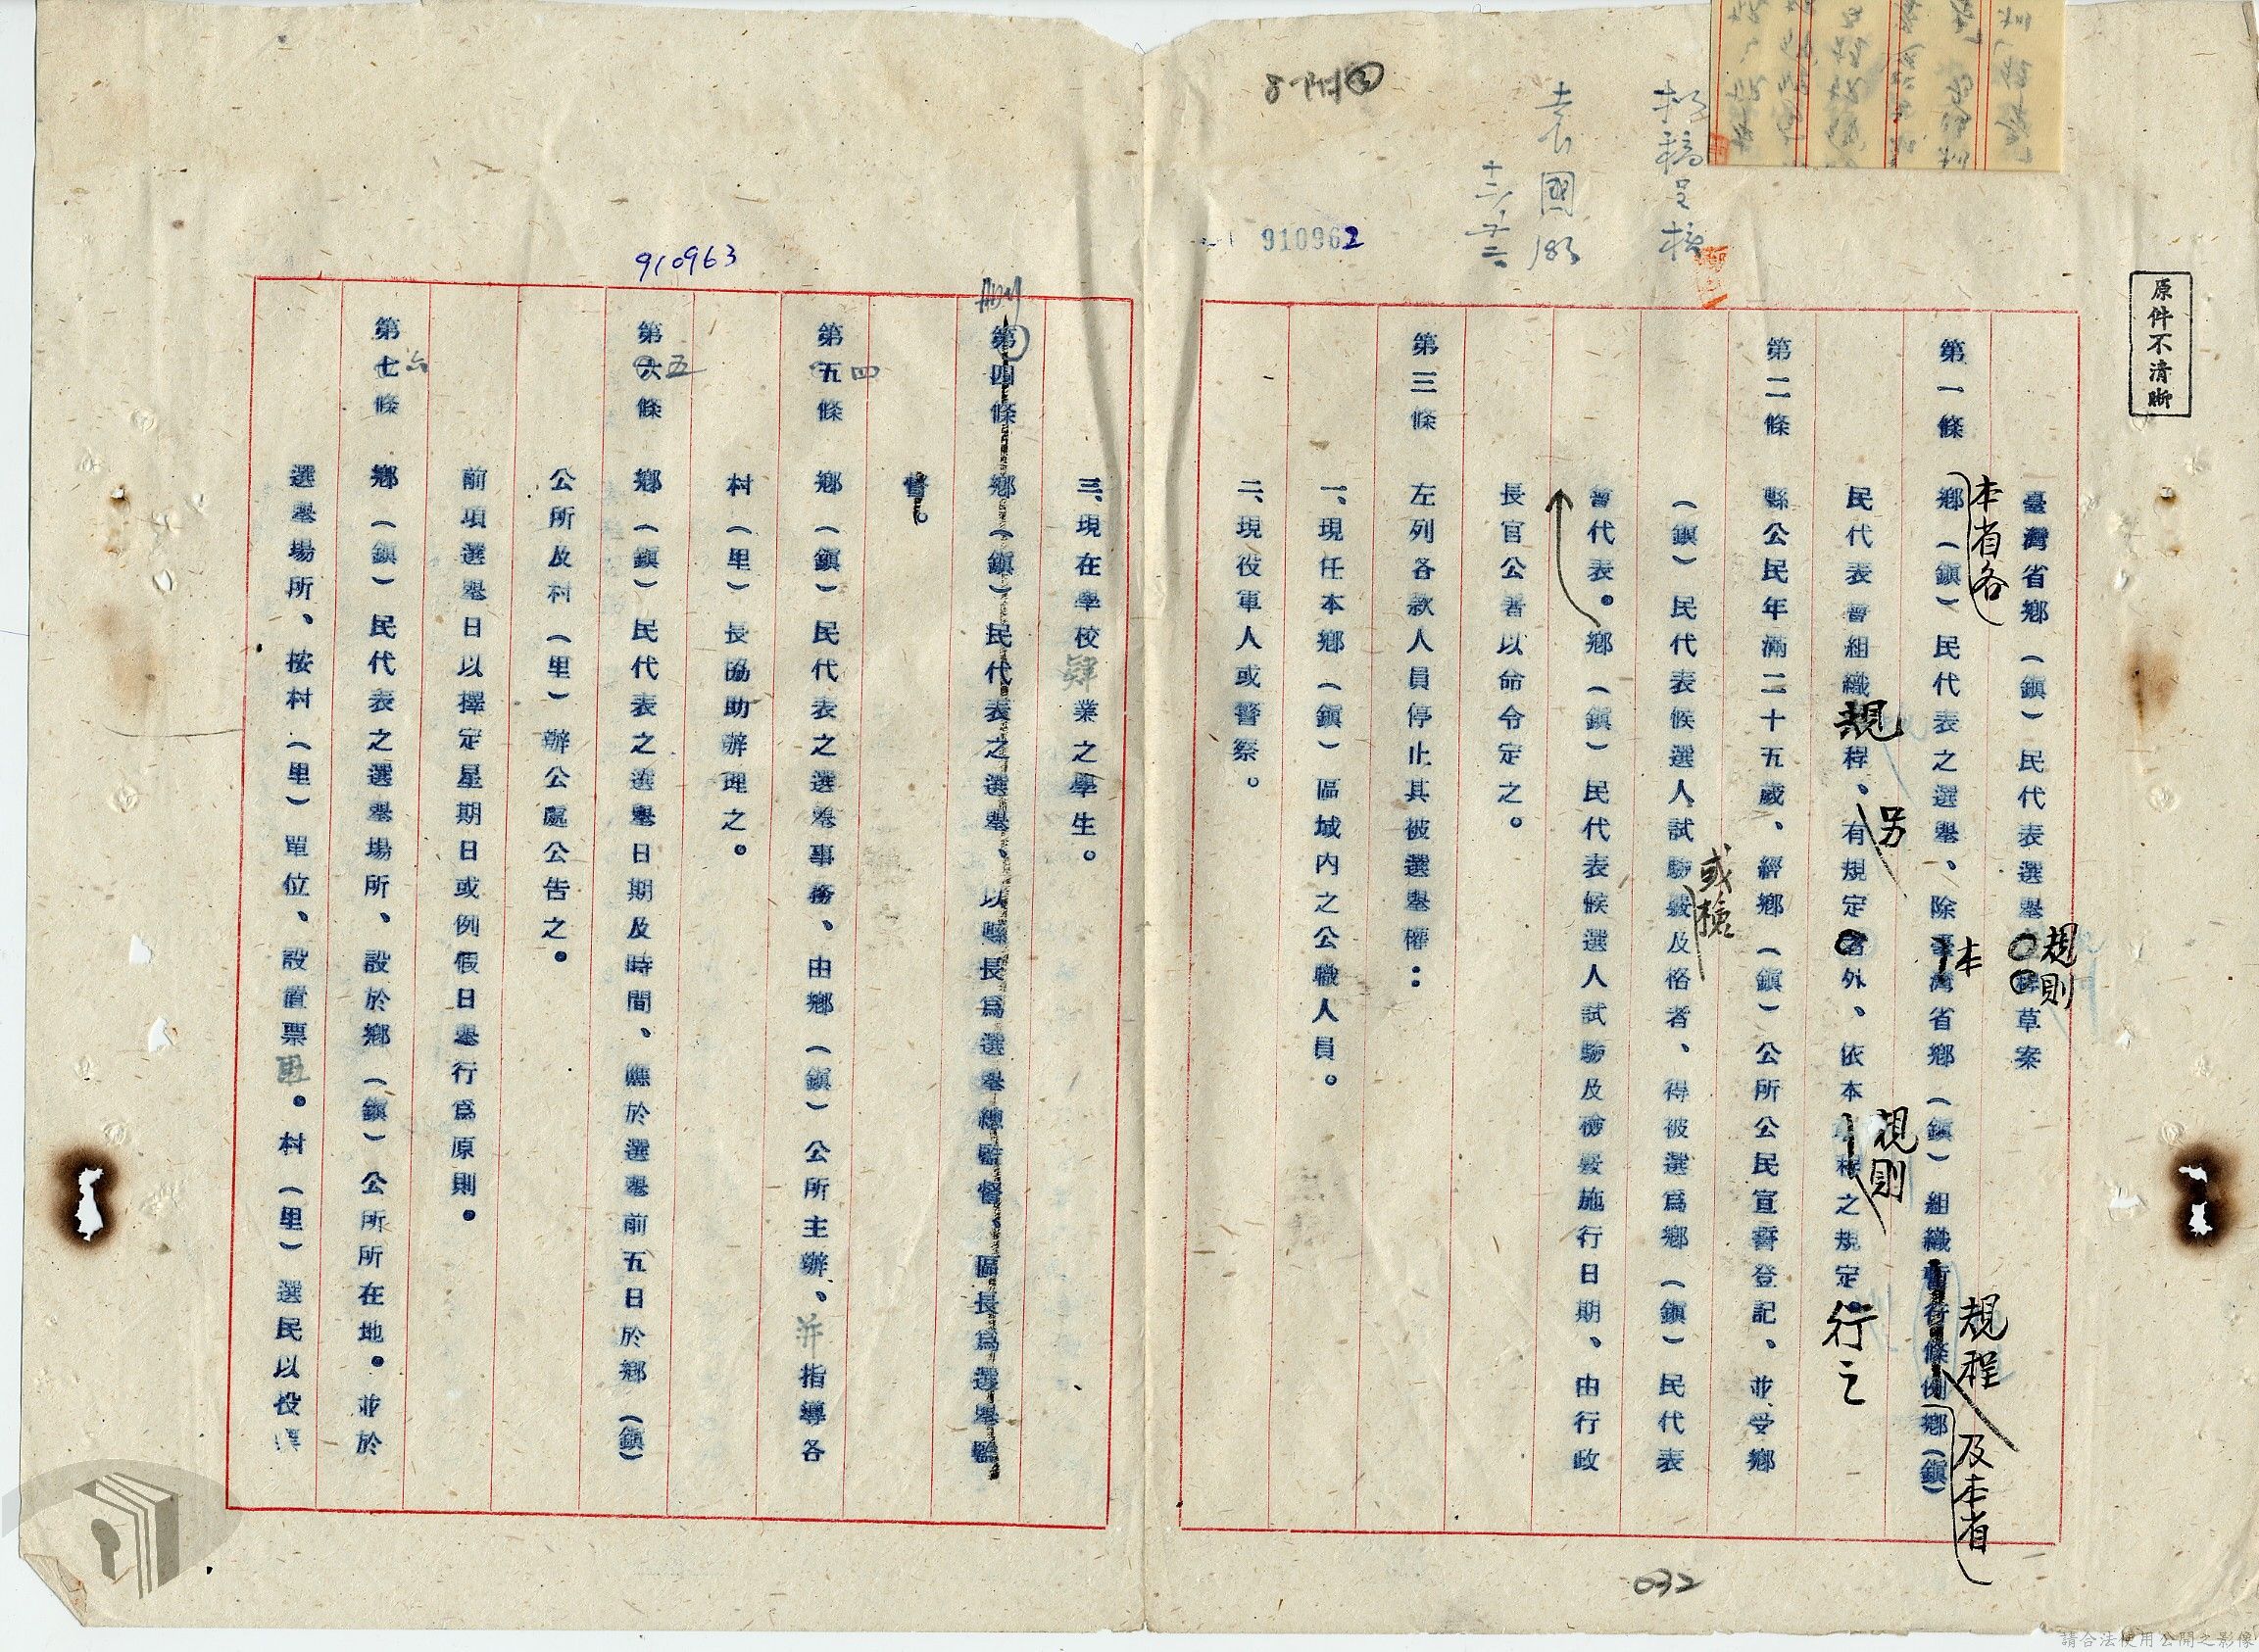 原件不清晰
擬稿呈核
袁國
十二、廿二、
8附②
910962
臺灣省鄉（鎮）民代表選舉規則草案
本省各
第一條　鄉（鎮）民代表之選舉、除本省鄉（鎮）組織規程及本省鄉（鎮）
民代表會組織規程、另有規定者外、依本規則之規定行之
第二條　縣公民年滿二十五歲、經鄉（鎮）公所公民宣誓登記、並受鄉
（鎮）民代表候選人試驗或檢覈及格者、得被選爲鄉（鎮）民代表
會代表。鄉（鎮）民代表候選人試驗及檢覈施行日期、由行政
長官公署以命令定之。
第三條　左列各款人員停止其被選舉權：
一、現任本鄉（鎮）區域內之公職人員。
二、現役軍人或警察。
032
910963
三、現在學校肄業之學生。
刪
第四條　鄉（鎮）民代表之選舉、以縣長爲選舉總監督、區長爲選舉監
督。
第五條　四　鄉（鎮）民代表之選舉事務、由鄉（鎮）公所主辦、並指導各
村（里）長協助辦理之。
第六條　五　鄉（鎮）民代表之選舉日期及時間、應於選舉前五日於鄉（鎮）
公所及村（里）辦公處公告之。
前項選舉日以擇定星期日或例假日舉行爲原則。
第七條　六　鄉（鎮）民代表之選舉場所、設於鄉（鎮）公所所在地。並於
選舉場所、按村（里）單位、設置票匭。村（里）選民以投票
請合法使用公開之影像